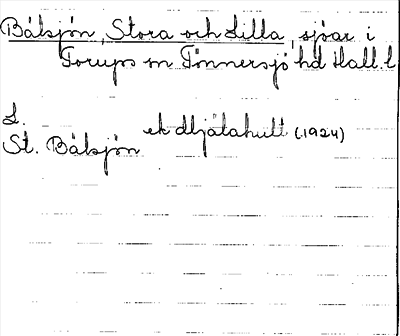 Båksjön, Stora och Lilla, sjöar i
Torups sn Tönnersjö hd Hall. l
L.
St. Båksjön ek Hjälahult (1924)